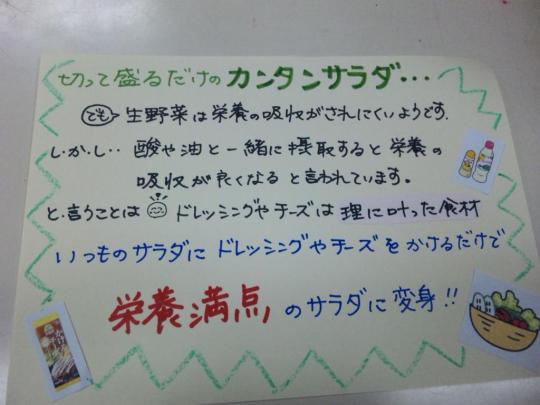 切って盛るだけのカンタンサラダ…
でも 生野菜は栄養の吸収がされにくいようです.
しかし.. 酸や油と一緒に摂取すると栄養の
吸収が良くなると言われています。
と言うことは ドレッシングやチーズは 理に叶った食材
いつものサラダにドレッシングやチーズをかけるだけで
栄養満点のサラダに変身!!